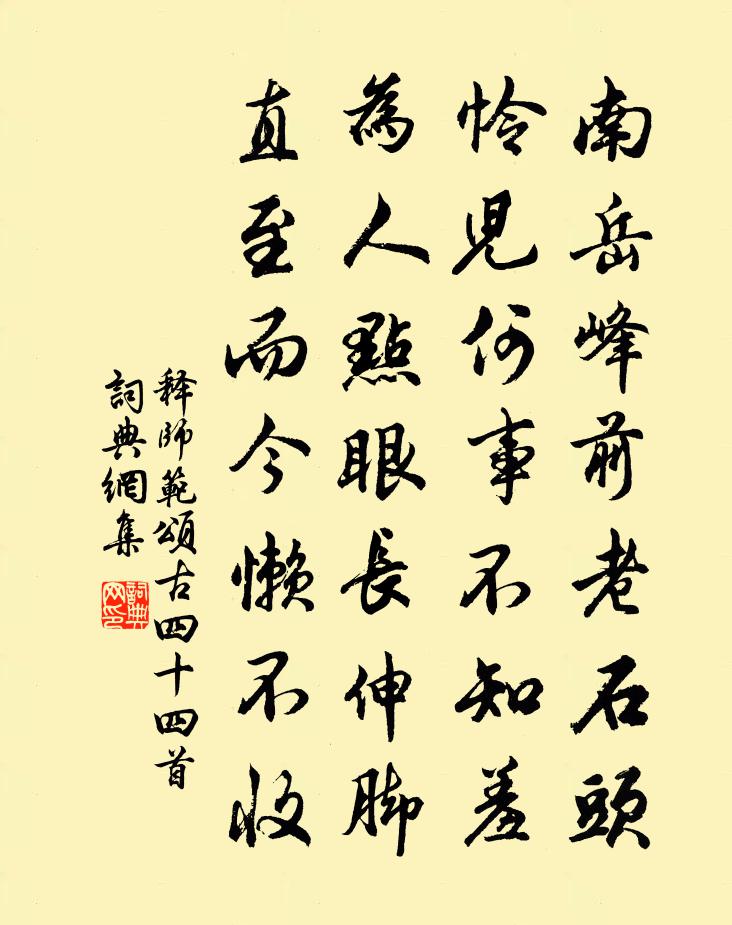 南岳峰前老石頭
怜児何事不知羞
為人點眼長伸脚
直至而今懶不收
释師範頌古四十四首
詞典網集
詞典网印